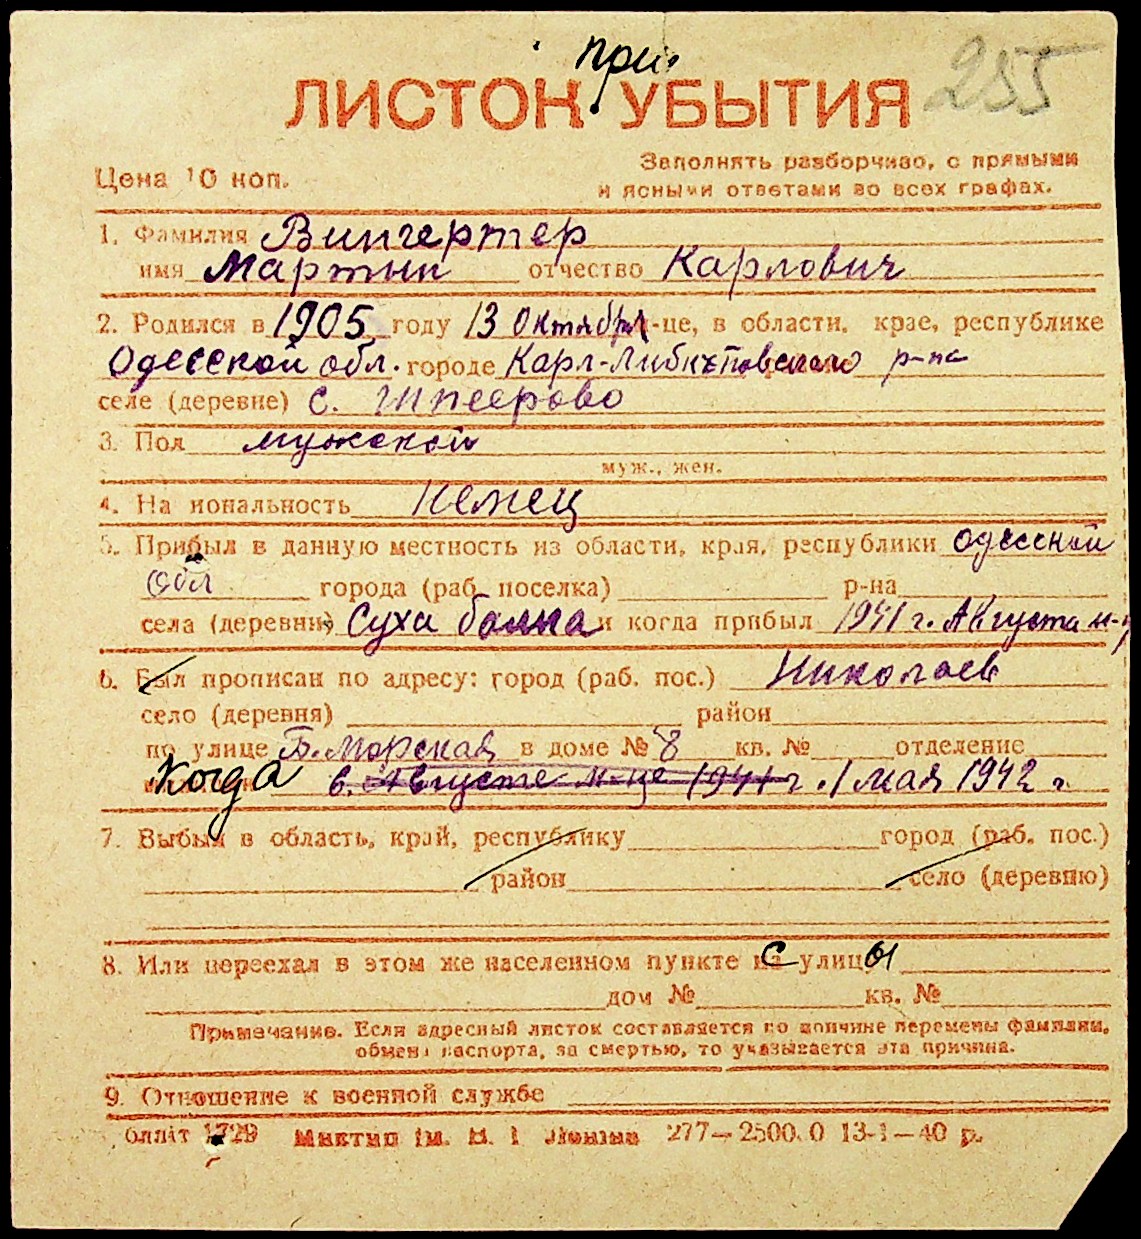 при
ЛИСТОК УБЫТИЯ 255
Цена 10 коп.
Заполнять разборчиво, с прямыми
и ясными ответами во всех графах.
1. Фамилия Вингертер
имя Мартин отчество Карлович
2. Родился в 1905 году 13 Октября-це, в области, крае, республике
Одесской обл. городе Карл-Либкнтовского р-на
селе (деревне) с. Шпеерово
3. Пол мужской
муж., жен.
4. На иональность Немец
5. Прибыл в данную местность из области, края, республики Одесской
Обл города (раб. поселка) р-на
села (деревни) Суха балка и когда прибыл 1941 г. Августа м-ц
6. Был прописан по адресу: город (раб. пос.) Николаев
село (деревня) район
по улице Б. Морская в доме № 8 кв. № отделение
Когда в. Августе м-це 1941 г. 1 мая 1942 г.
7. Выбыл в область, край, республику город (раб. пос.)
район село (деревню)
8. Или переехал в этом же населенном пункте с улицы
дом № кв. №
Примечание. Если адресный листок составляется по причине перемены фамилии,
обмена паспорта, за смертью, то указывается эта причина.
9. Отношение к военной службе
1729 ім. Леніна 277—2500.0 13-1—40 р.